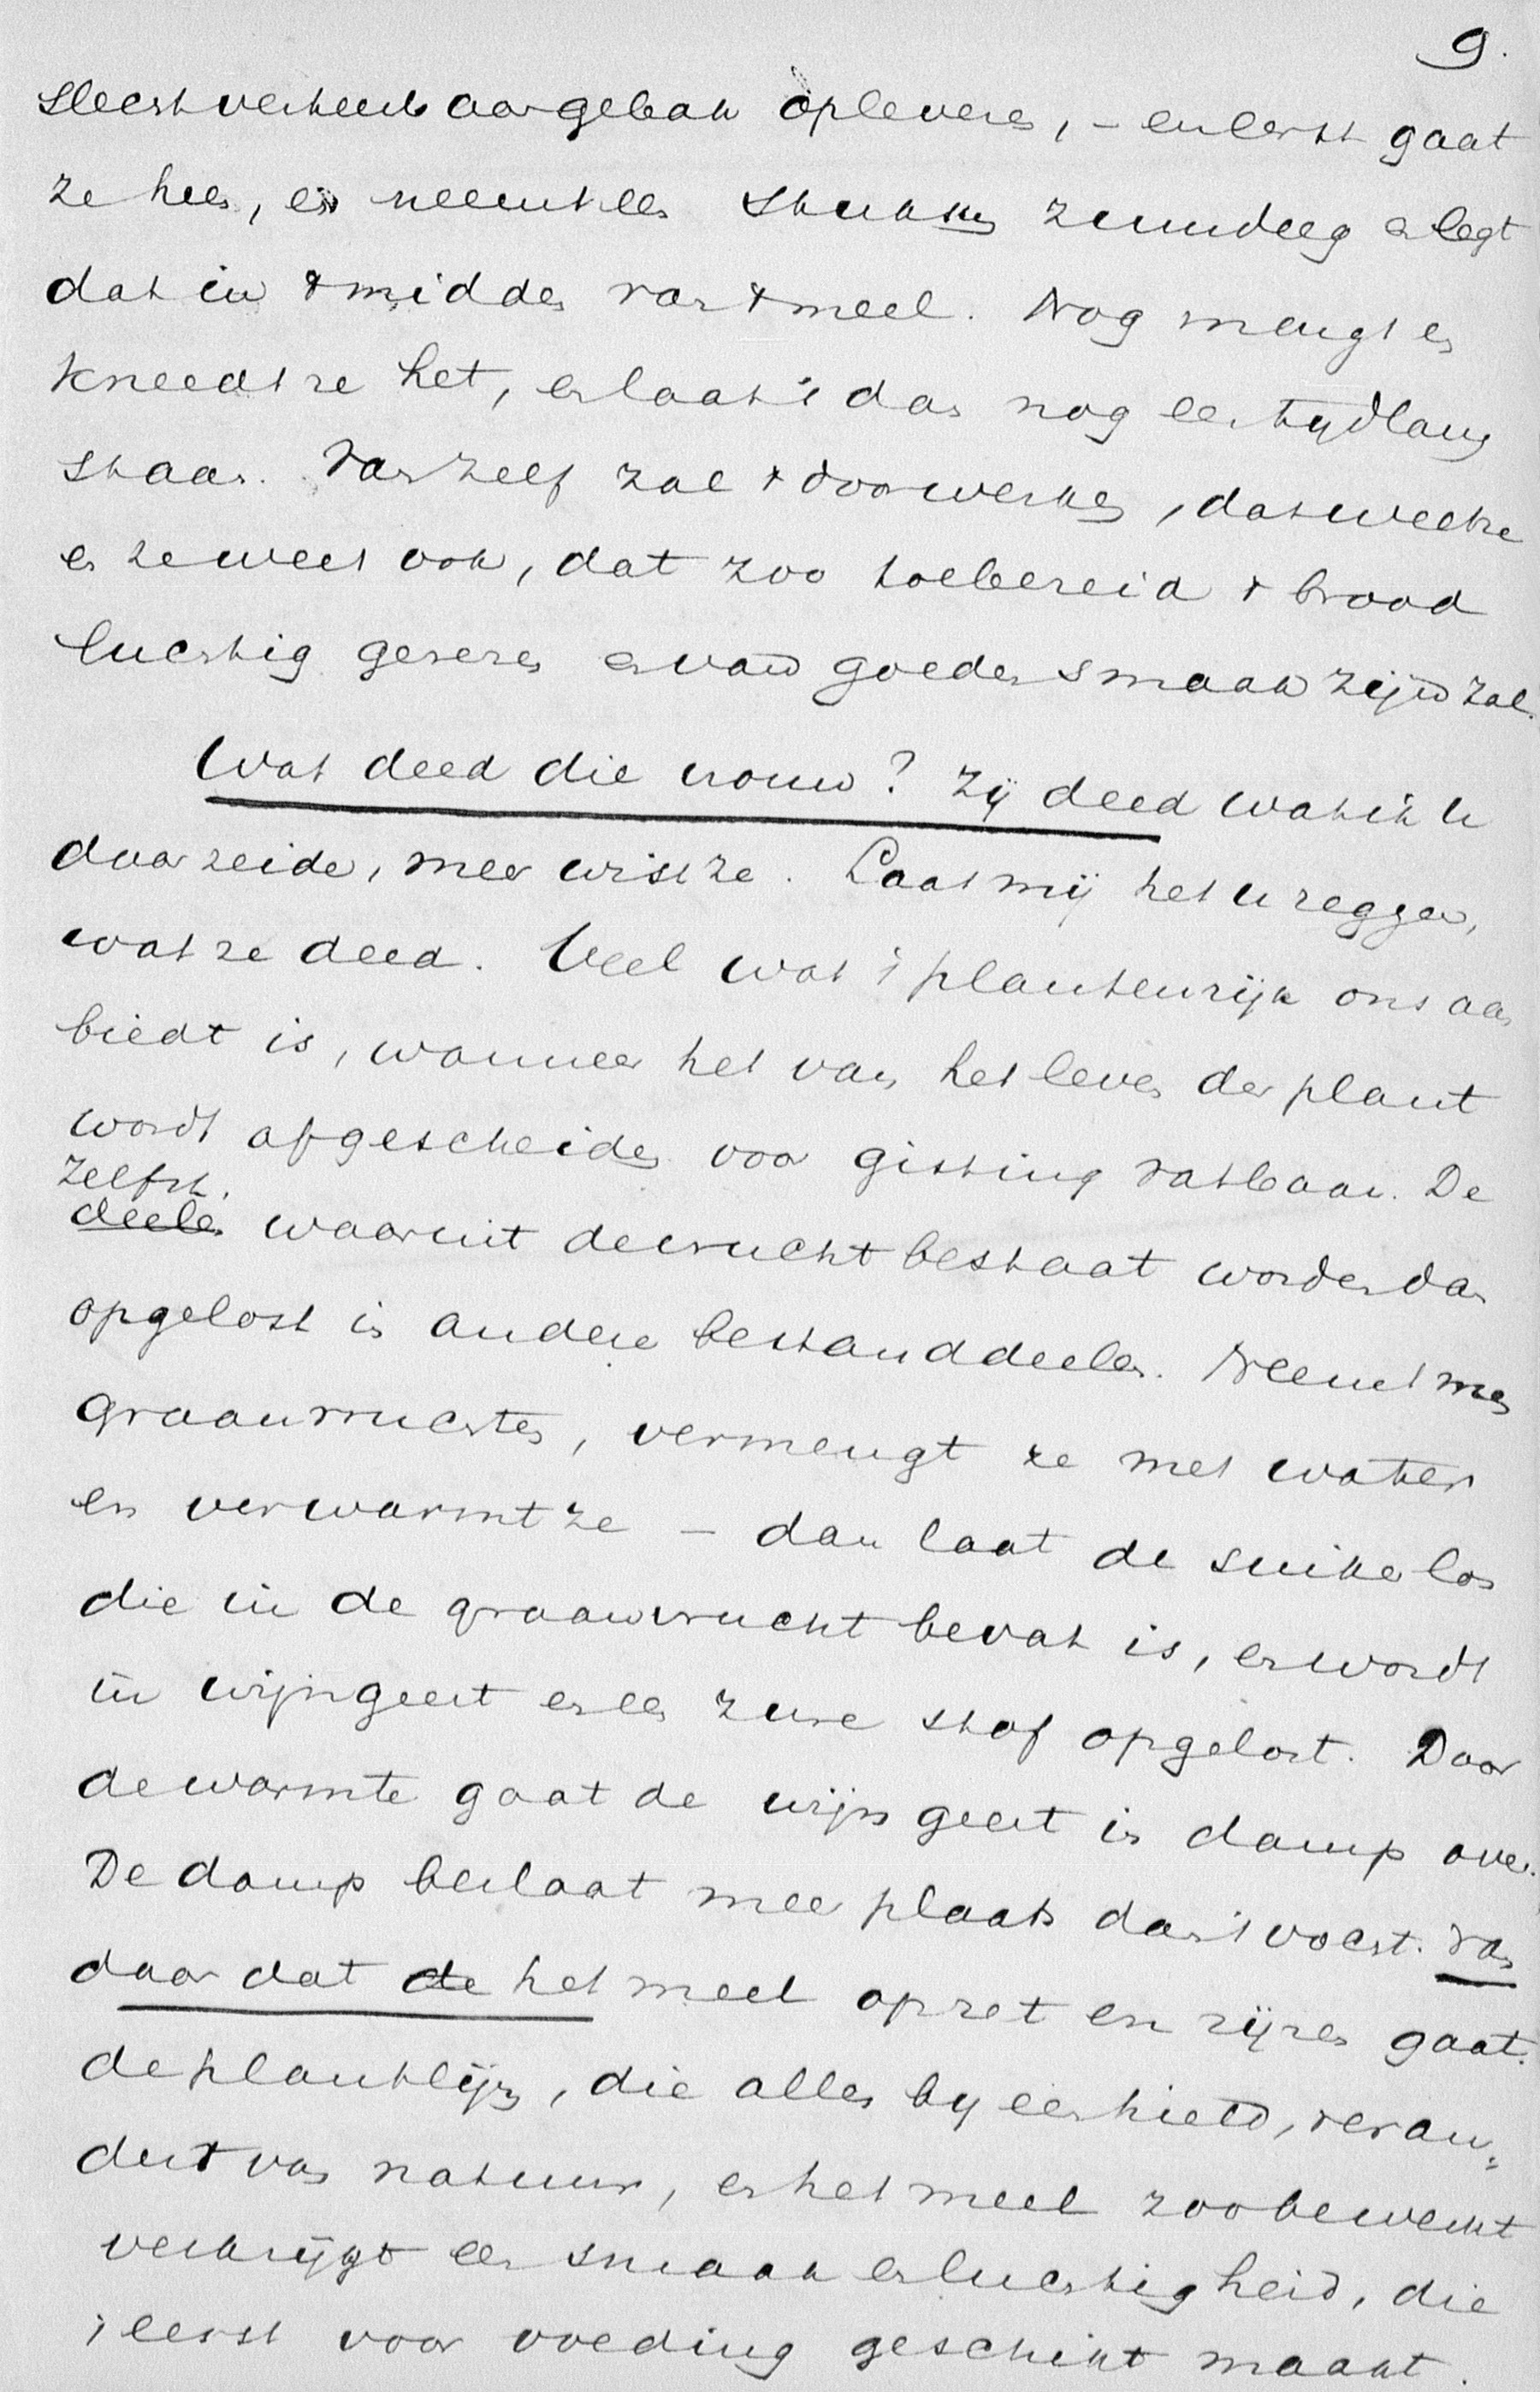 9.
slecht verteerb aar gebak opleveren, – en eerst gaat
ze heen, en neemt een stukske zuurdeeg en legt
dat in 't midden van 't meel. Nog mengt en
kneedt ze het, en laat 't dan nog een tijdlang
staan. Van zelf zal 't doorwerken, dat weet ze
en ze weet ook, dat zoo toebereid 't brood
luchtig gerezen en van goeden smaak zijn zal.
Wat deed die vrouw? Zij deed wat ik u
daar zeide, meer wist ze. Laat mij het u zeggen,
wat ze deed. Veel wat 't plantenrijk ons aan
biedt is, wanneer het van het leven der plant
wordt afgescheiden voor gisting vatbaar. De
zelfst.
deelen waaruit de vrucht bestaat worden dan
opgelost in andere bestanddeelen. Neemt men
graanvruchten, vermengt ze met water
en verwarmt ze – dan laat de suiker los
die in de graanvrucht bevat is, en wordt
in wijngeest en een zure stof opgelost. Door
de warmte gaat de wijngeest in damp over.
De damp beslaat meer plaats dan 't vocht. Van
daar dat de het meel opzet en rijzen gaat.
de plantlijm, die alles bij een hield, veran=
dert van natuur, en het meel zoo bewerkt
verkrijgt een smaak en luchtigheid, die
't eerst voor voeding geschikt maakt.